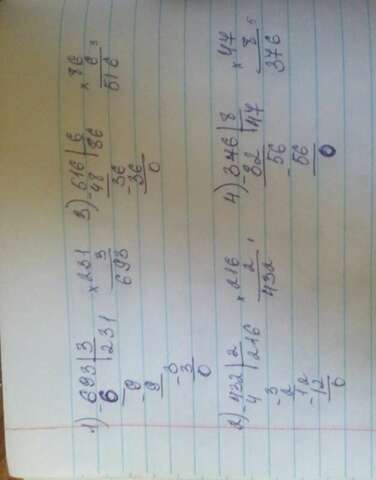 1) -693|3 ×231 3) -516|6 ×86
6 |231 3 48 |86 6 3
-9 693 -36 516
9 36
-3 0
3
0
2) -432|2 ×216 4) -376|8 ×47
4 |216 2 1 32 |47 8 5
-3 432 -56 376
2 56
-12 0
12
0